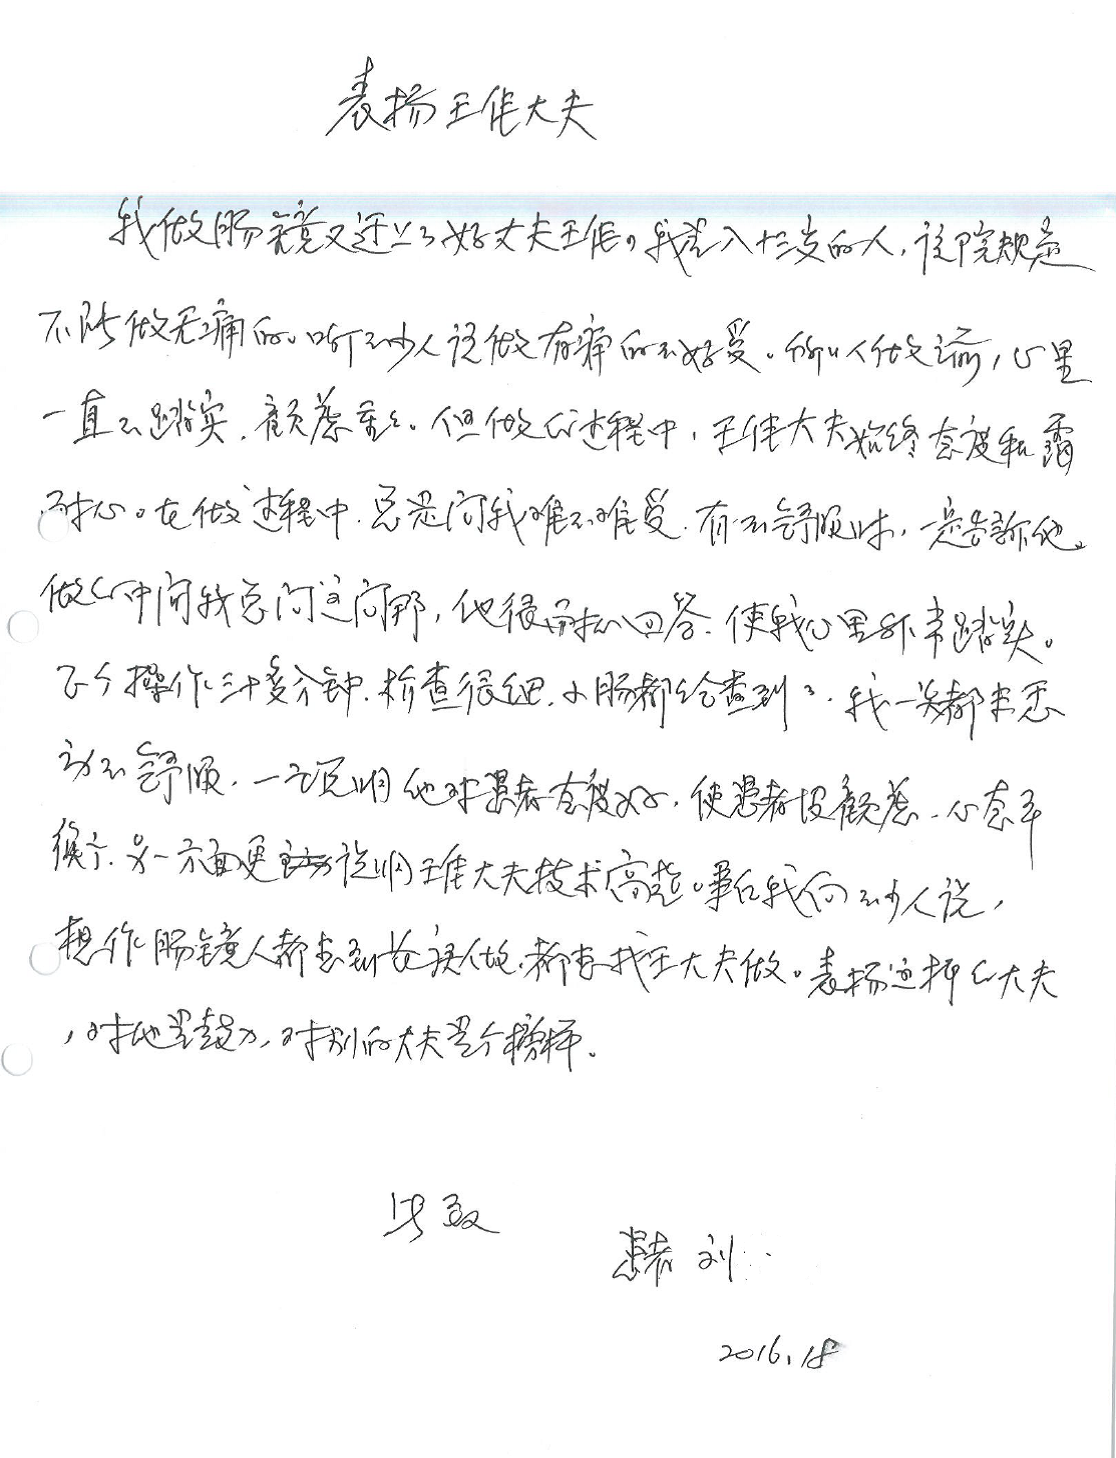 表扬王伟大夫
我做肠镜又遇上了好大夫王伟。我是八十三岁的人，该院规定
不能做无痛的。听不少人说做有痛的不好受。所以做之前，心里
一直不踏实，顾虑重重。但做的过程中，王伟大夫始终态度和蔼
耐心。在做过程中，总是问我难不难受，有不舒服时，一定告诉他。
做的中间我总问这问那，他很耐心回答，使我心里非常踏实。
整个操作三十多分钟，检查很细，小肠都给查到了，我一点都未感
觉不舒服，一方面说明他对患者态度好，使患者没顾虑，心态平
衡，另一方面更说明王伟大夫技术高超。事后我向不少人说，
想作肠镜人都要到该院做，都要找王大夫做。表扬这样的大夫
，对他是鼓励，对别的大夫是个榜样。
此致
患者 刘
2016.18